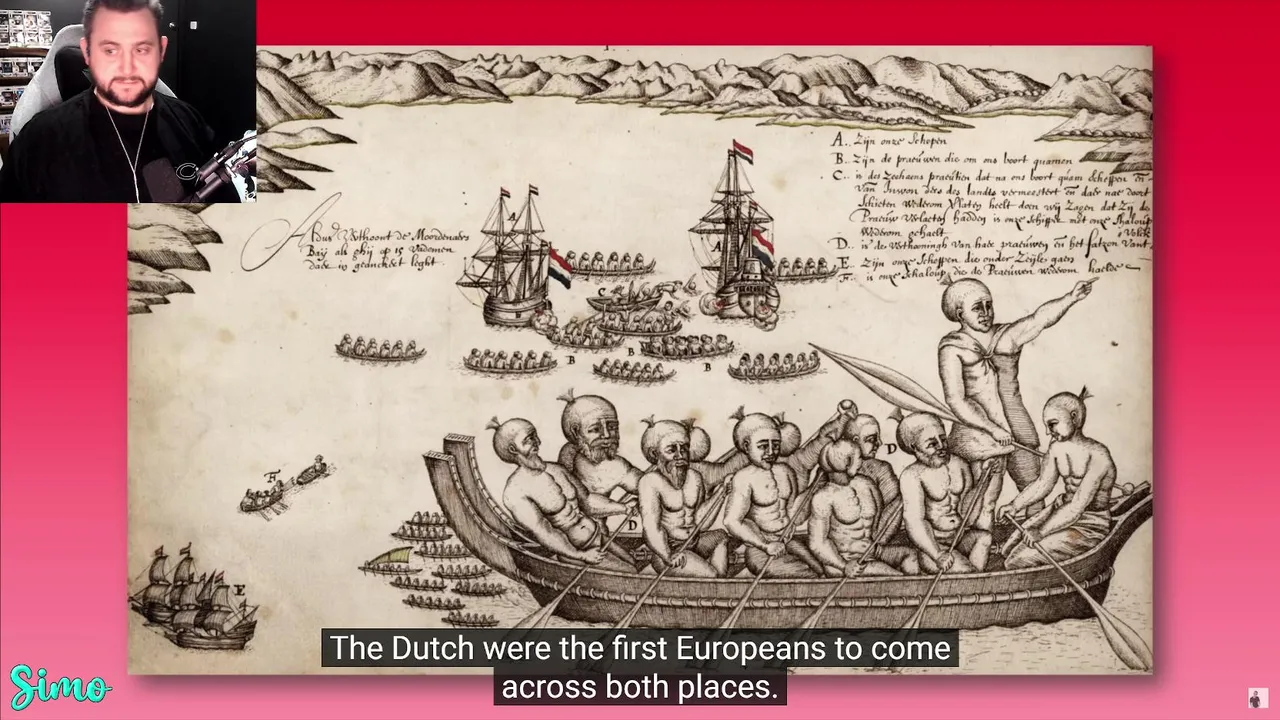 A.. Zijn onze Schepen
B.. Zijn de praeuwen die om ons boort quamen
C.. is des Zeehaens praeutien dat na ons boort quam Scheppen en
van Inwon ders des landts vermeestert en daer nae doort
Schieten wederom Verlaten heeft doen wij Zagen dat Zij de
Praeuw Verlaeten hadden is onze Schipper met onze Chaloup
Wederom gehaelt
D.. is de Vethooningh van haer praeuwen en het fatzon Vant
Volck
E.. Zijn onze Schepen die onder Zeijle gaen
F.. is onze Schaloup die de Praeuwen wederom haelde
Aldus Vethoont de Moordenaers
Baij als ghij op 15 Vademen
daer in geanckert leght.
A
A
C
B
B
B
D
D
F
E
The Dutch were the first Europeans to come
across both places.
Simo